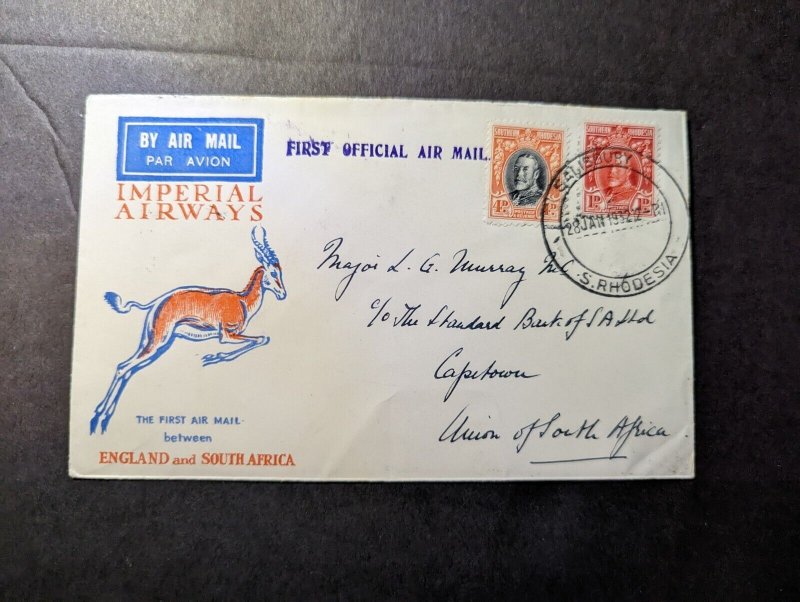 BY AIR MAIL
PAR AVION
IMPERIAL
AIRWAYS
FIRST OFFICIAL AIR MAIL.
SOUTHERN RHODESIA
4D 4D
POSTAGE
REVENUE
SOUTHERN RHODESIA
1D 1D
SALISBURY
28 JAN 1932
S. RHODESIA
Major L. G. Murray M.C.
c/o The Standard Bank of S A Ltd
Capetown
Union of South Africa
THE FIRST AIR MAIL
between
ENGLAND and SOUTH AFRICA